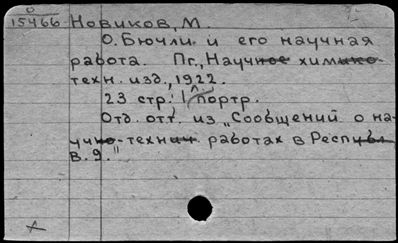 О
15466 Новиков, М.
О. Бючли и его научная
работа. Пг., Научное химико-
техн. изд., 1922.
23 стр. 1 портр.
Отд. отт. из „Сообщений о на-
учно-технич работах в Республ
В. 9."